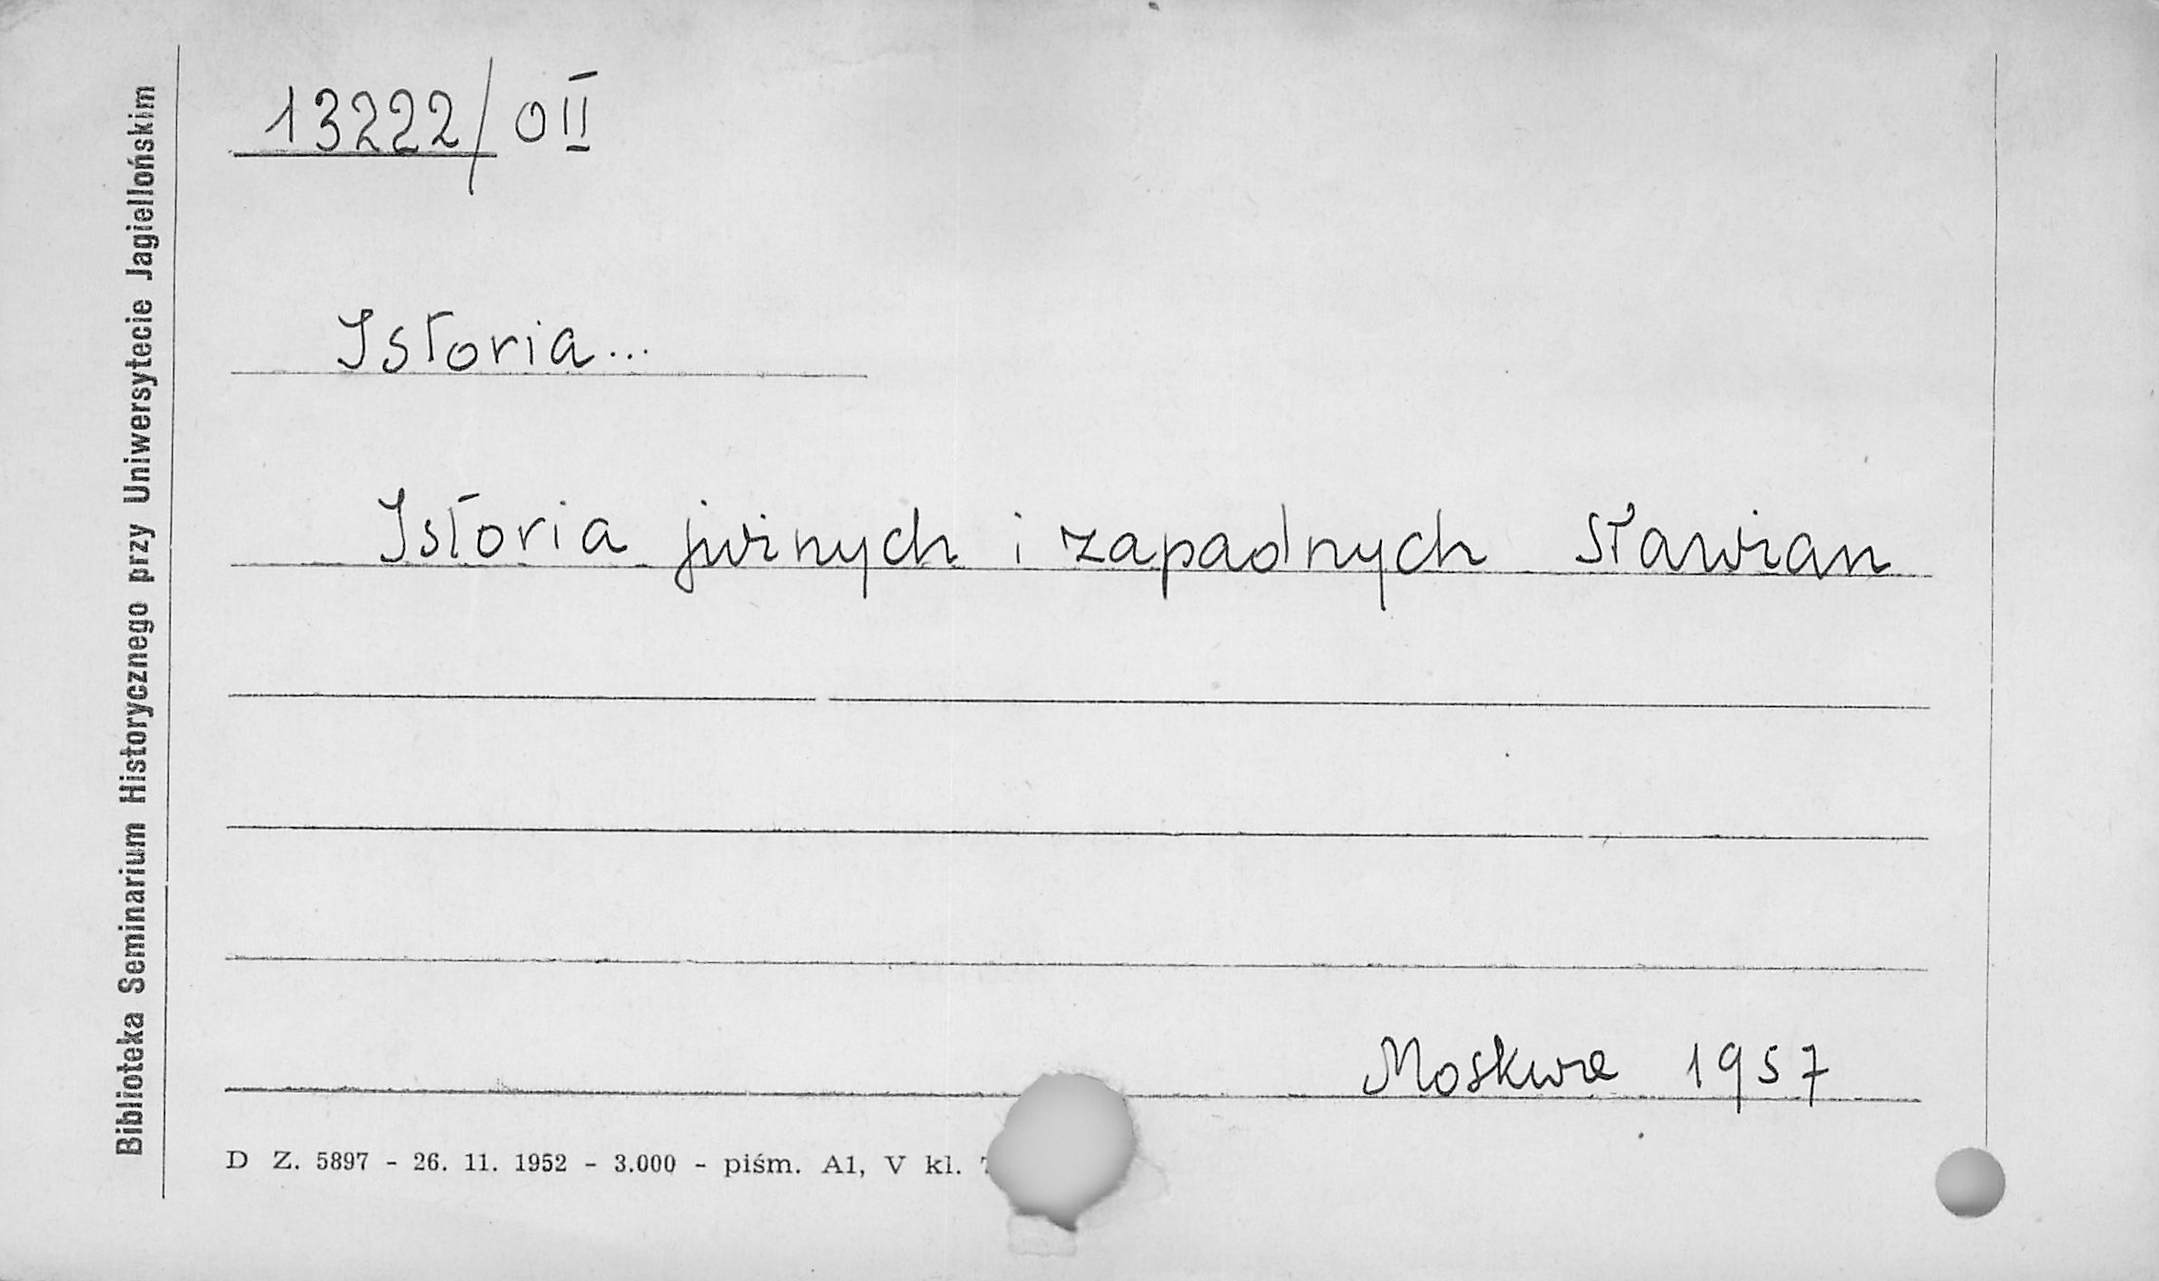 Biblioteka Seminarium Historycznego przy Uniwersytecie Jagiellońskim
13222/0 II
Istoria...
Istoria jużnych i zapadnych sławian
Moskwa 1957
D Z. 5897 - 26. 11. 1952 - 3.000 - piśm. A1, V kl.